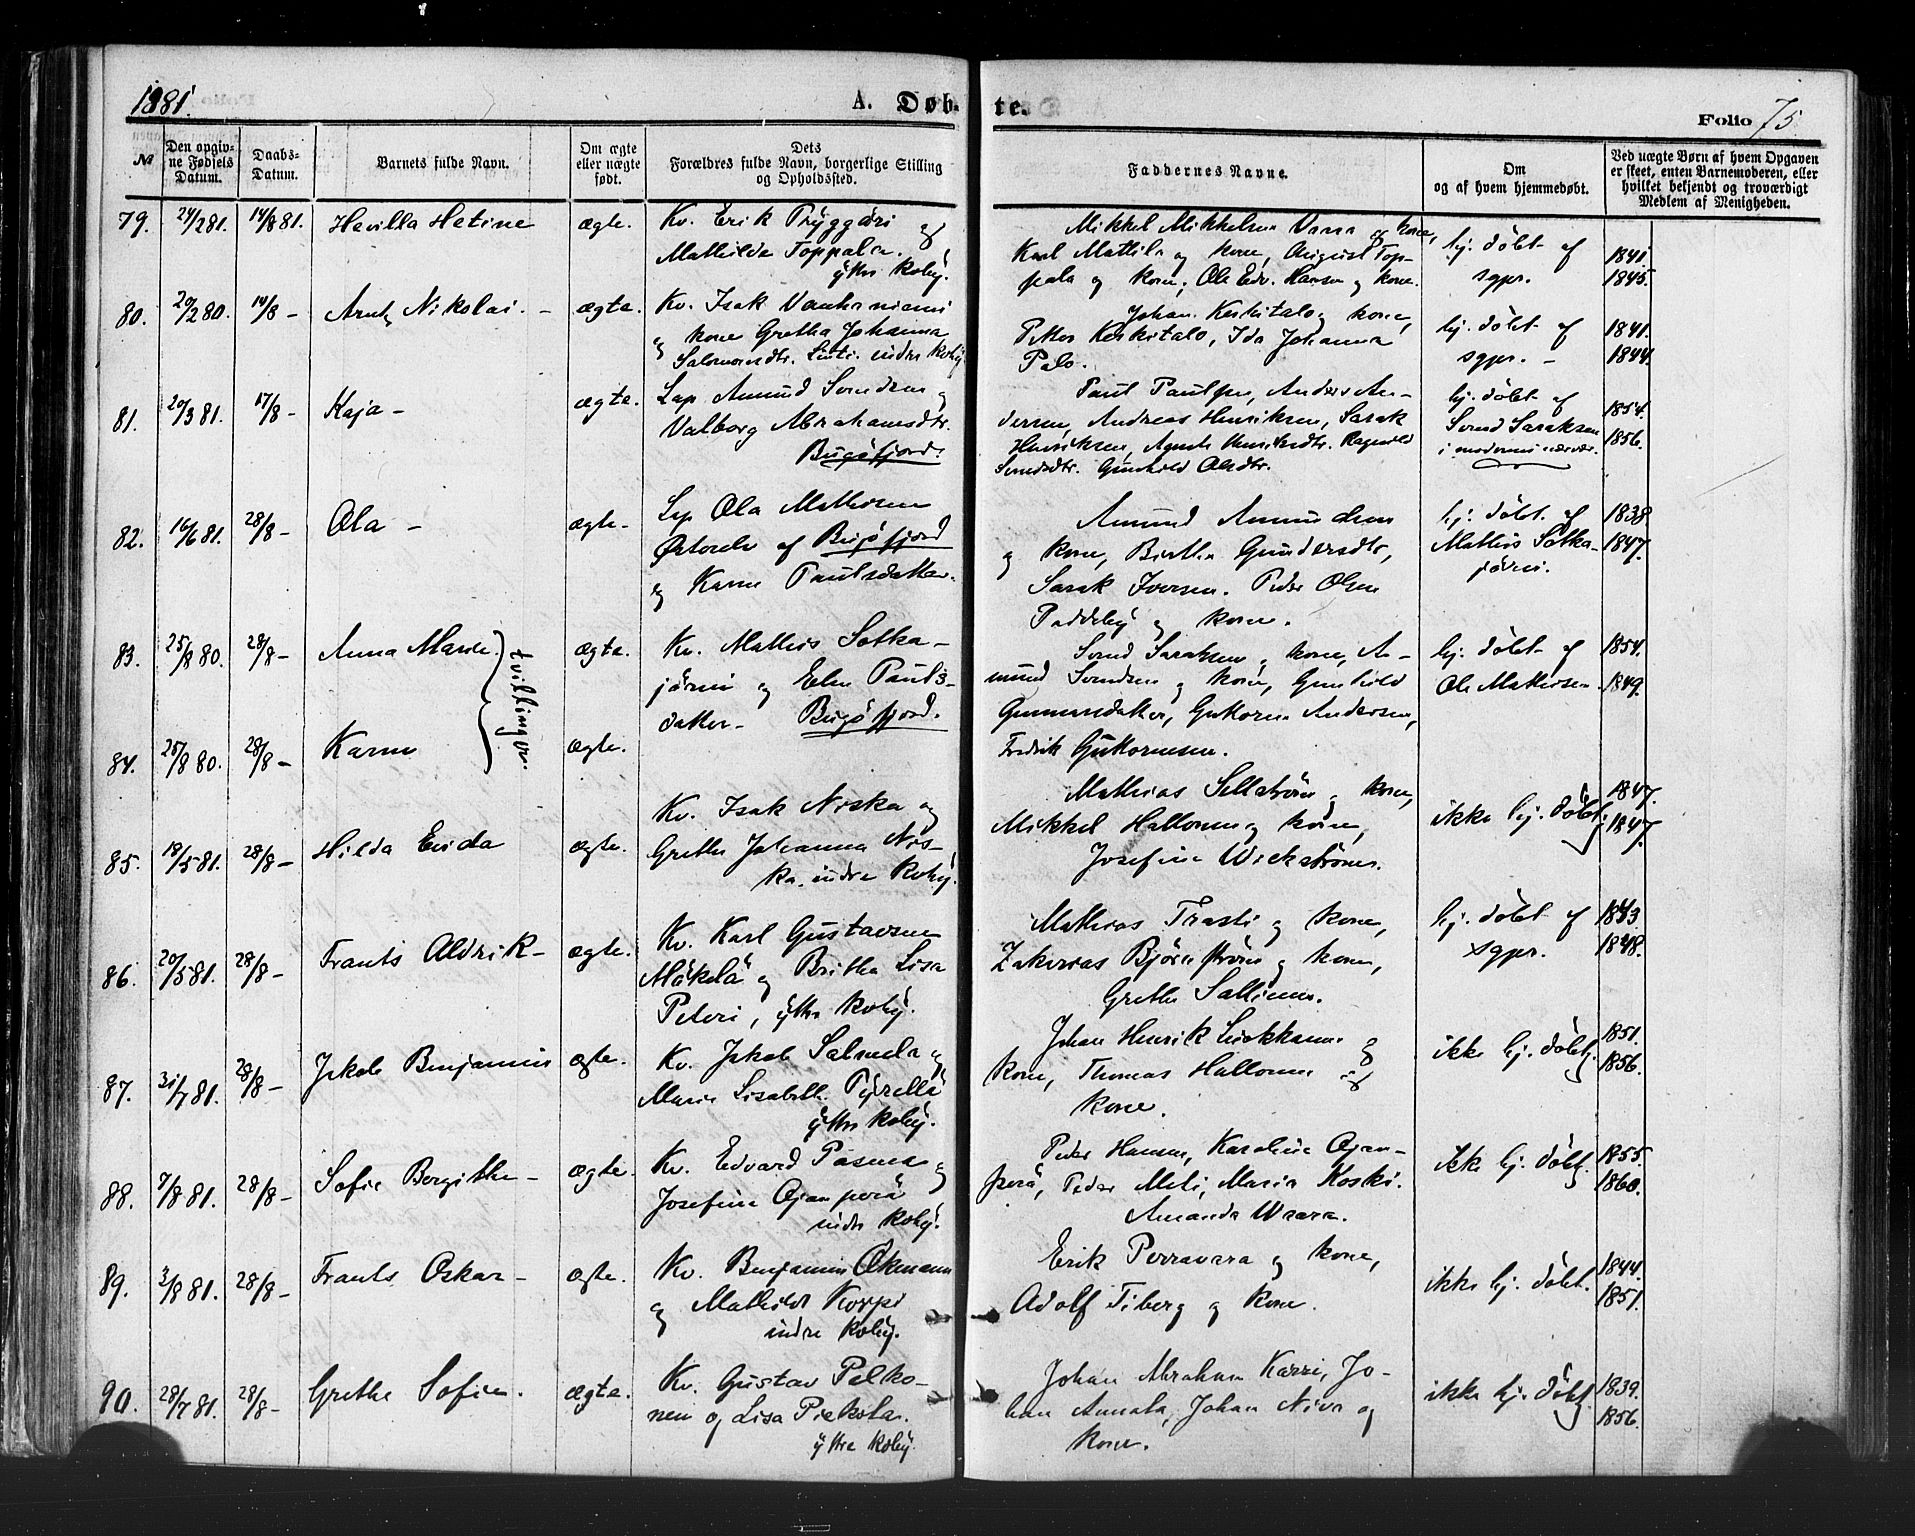 1881.
A. Døb-
te.
Folio 75
№
Den opgiv-
ne Fødsels
Datum.
Daabs-
Datum.
Barnets fulde Navn.
Om ægte
eller uægte
født.
Dets
Forældres fulde Navn, borgerlige Stilling
og Opholdssted.
Faddernes Navne.
Om
og af hvem hjemmedøbt.
Ved uægte Børn af hvem Opgaven
er skeet, enten Barnemoderen, eller
hvilket bekjendt og troværdigt
Medlem af Menigheden.
79. 24/2 81. 14/8 81. Hevilla Hetine ægte. Kv. Erik Tryggäri og
Mathilde Toppala.
yttre Koby.
Mikkel Mikkelsen Vara og kone,
Karl Mattila og kone, August Top-
pala og kone, Ole Edv. Hansen og kone.
hj. döbt af
sgpr.
1841.
1845.
80. 20/2 80. 14/8 - Arnt Nikolai. - ægte. Kv. Isak Vanhaniemi
og kone Gretha Johanna
Salomonsdtr. indre Koby
Johan Keskitalo og kone,
Petter Keskitalo, Ida Johanna
Palo.
hj. döbt af
sgpr. -
1841.
1844.
81. 20/3 81. 17/8 - Kaja - ægte. Lap Amund Svendsen og
Valborg Abrahamsdtr.
Bugöfjord.
Paul Paulsen, Anders An-
dersen, Andreas Henriksen, Sarak
Henriksen, Agnete Henriksdtr. Ragnild
Svendsdtr. Gunhild Olsdtr.
hj. döbt af
Svend Saraksen
i moderens nærvær.
1854.
1856.
82. 16/6 81. 28/8 - Ola - ægte. Lap Ola Mathisen
af Bugöfjord
og Karen Paulsdatter.
Amund Amundsen
og kone, Birthe Gundersdtr,
Sarak Iversen. Peder Olsen
Paddeby og kone.
hj. döbt af
Mathis Sotka-
järvi.
1838.
1847.
83. 25/8 80. 28/8 - Anna Marie. ægte. Kv. Mathis Sotka-
järvi og Elen Pauls-
datter - Bugöfjord.
tvillinger.
Svend Saraksen og kone, A-
mund Svendsen og kone, Gunhild
Gunnarsdatter, Guttorm Andersen,
Fredrik Guttormsen.
hj. döbt af
Ole Mathisen.
1854.
1849.
84. 25/8 80. 28/8 - Karen ægte.
85. 18/5 81. 28/8 - Hilda Enda ægte. Kv. Isak Niska og
Grethe Johanna Nis-
ka. indre Koby.
Mathias Sellström og kone,
Mikkel Hallonen og kone,
Josefine Wickström.
ikke hj. döbt.
1847.
1847.
86. 20/5 81. 28/8 - Frants Aldrik - ægte. Kv. Karl Gustavsen
Mäkelä og Britha Lisa
Peteri, ytre Koby.
Mathias Trasti og kone,
Zakarias Björnström og kone,
Grethe Sallinen.
hj. döbt af
sgpr.
1843.
1848.
87. 31/7 81. 28/8 - Jakob Benjamin ægte. Kv. Jakob Salmela og
Marie Lisabeth. Pyrellä
ytre Koby.
Johan Henrik Liekkanen og
kone, Thomas Hallonen og
kone.
ikke hj. döbt
1851.
1856.
88. 7/8 81. 28/8 - Sofie Bergithe - ægte. Kv. Edvard Pasma og
Josefine Ojanperä
indre Koby.
Peder Hansen, Karoline Ojan-
perä, Peder Meli, Maria Koski.
Amanda Waara.
ikke hj. döbt.
1855.
1860.
89. 3/8 81. 28/8 - Frants Oskar - ægte. Kv. Benjamin Økmann
og Mathilde Korpi
indre Koby.
Erik Perravara og kone,
Adolf Fiberg og kone.
ikke hj. döbt.
1844.
1851.
90. 28/7 81. 28/8 - Grethe Sofie. ægte. Kv. Gustav Pelko-
nen og Lisa Piekola.
ytre Koby.
Johan Abraham Karri, Jo-
han Annala, Johan Niva og
kone.
ikke hj. döbt
1839.
1856.